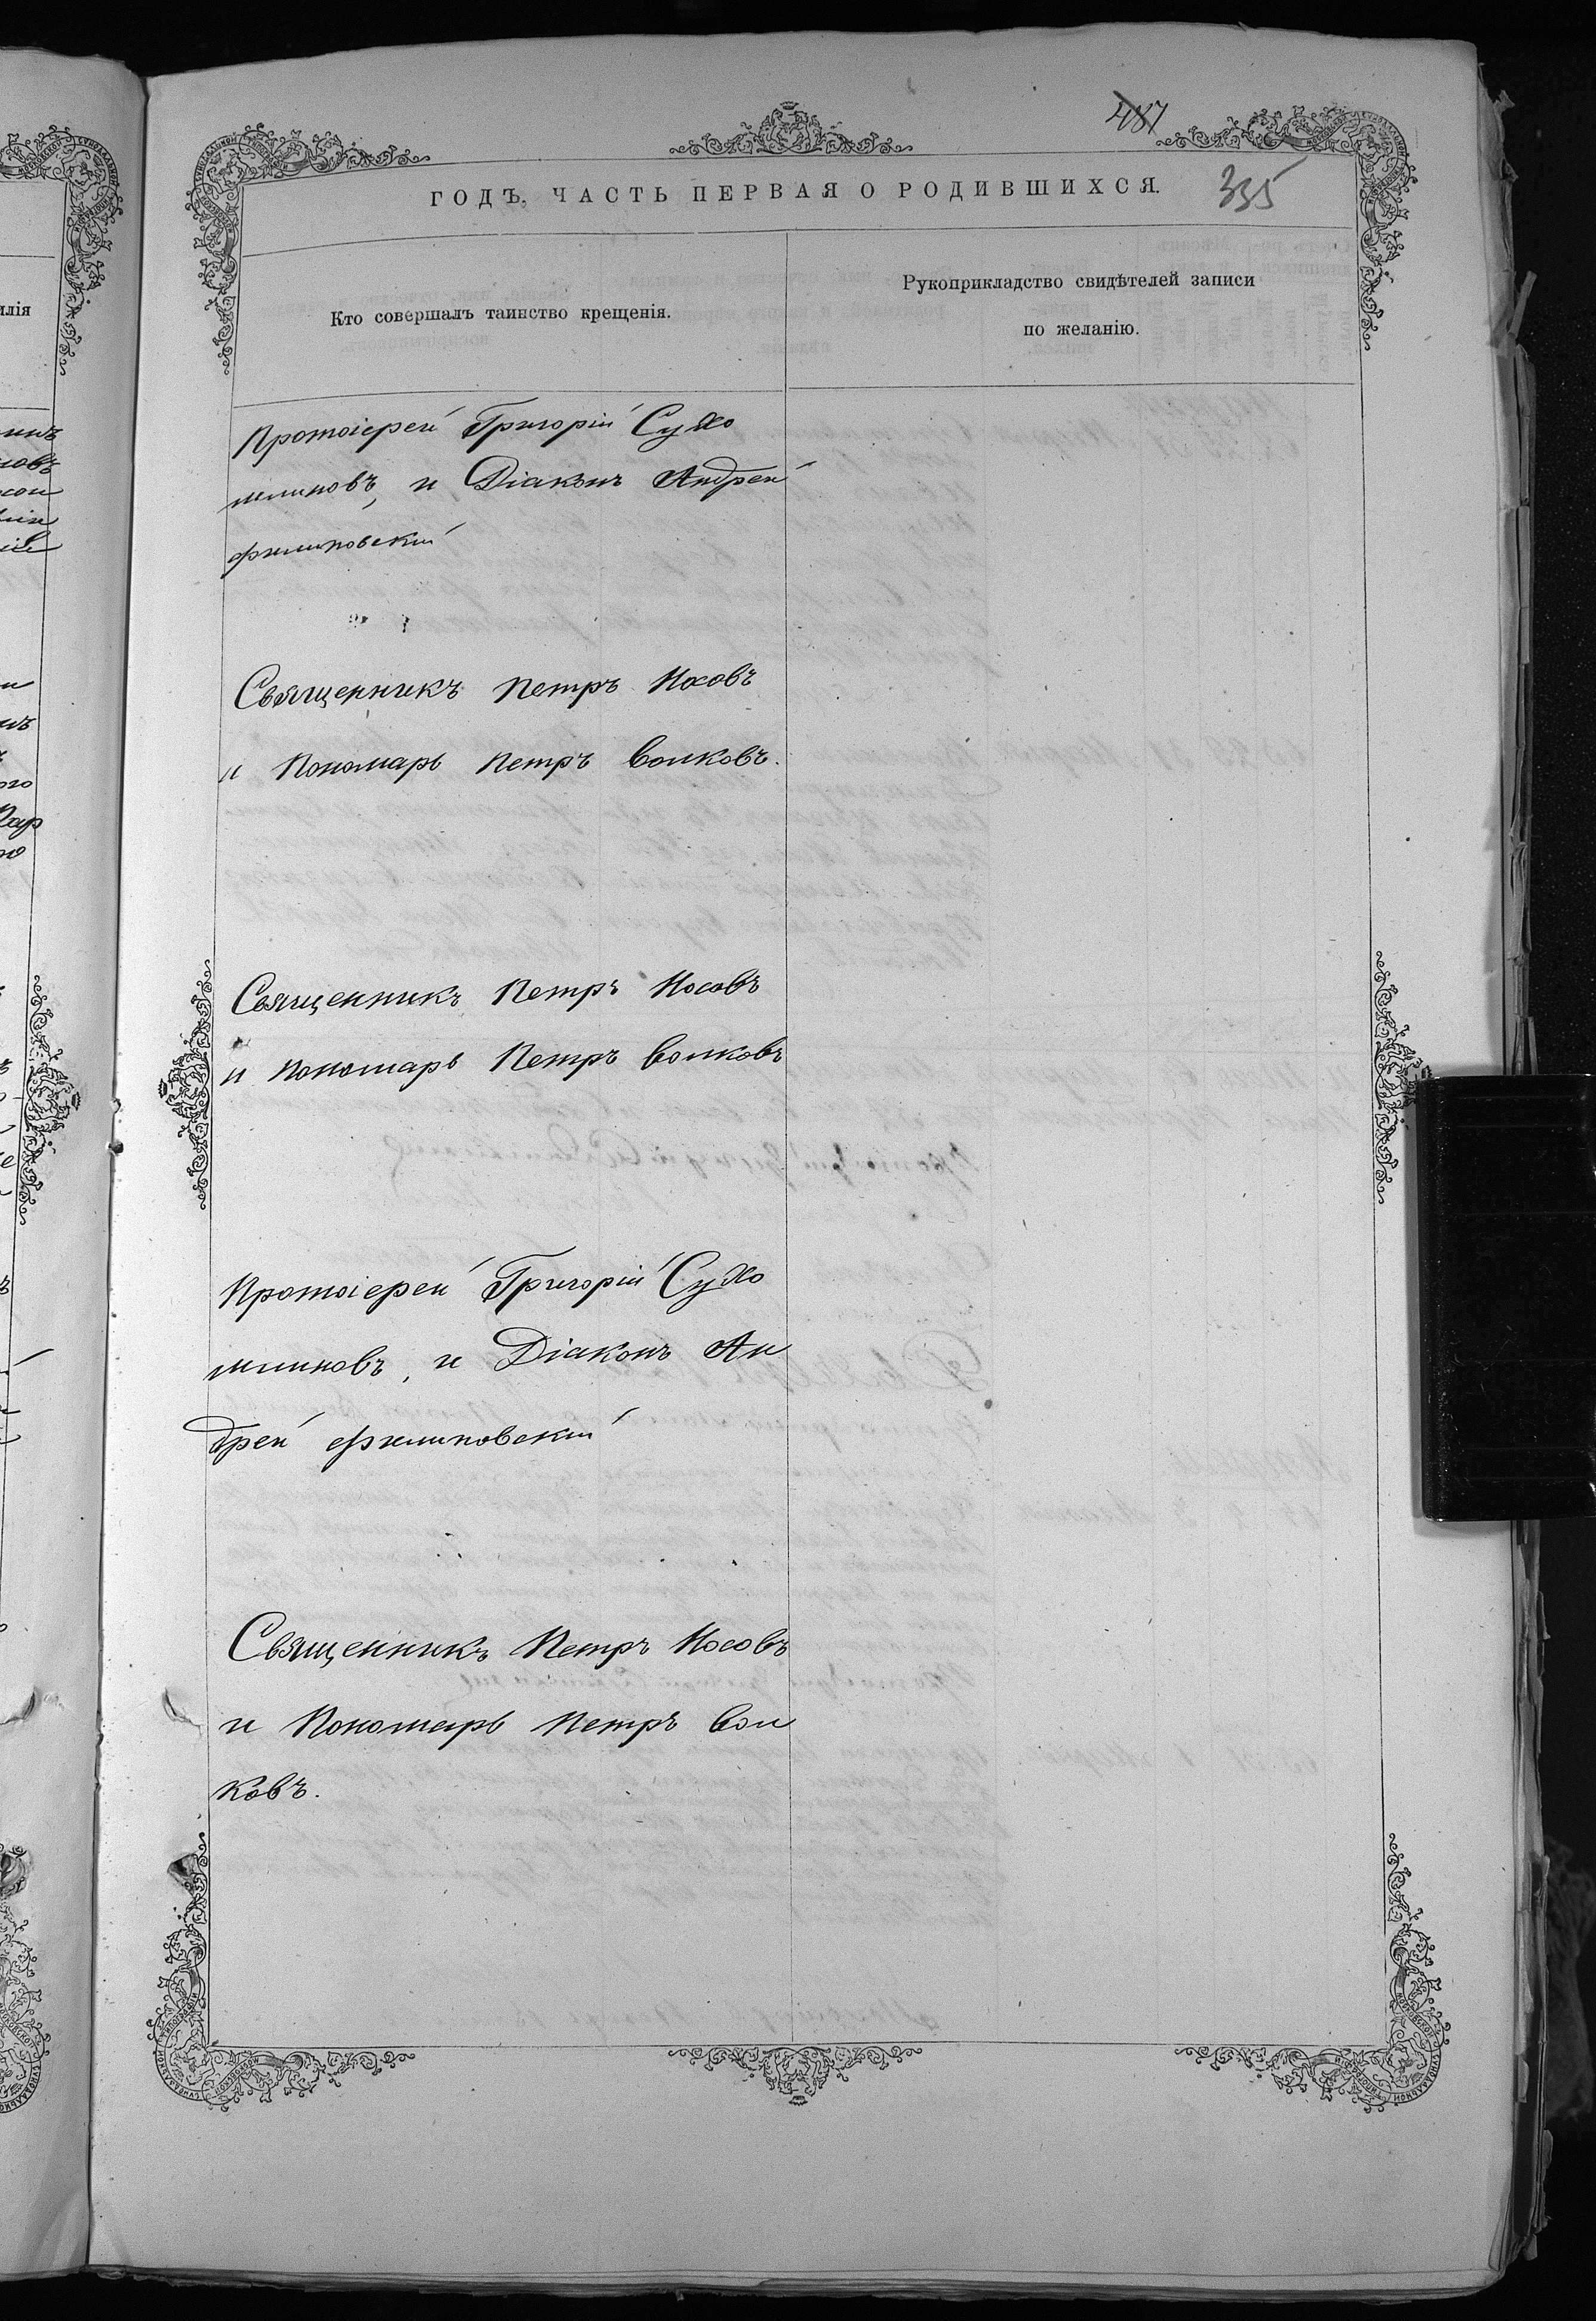 487
ГОДЪ. ЧАСТЬ ПЕРВАЯ О РОДИВШИХСЯ.
335
Кто совершалъ таинство крещенія.
Рукоприкладство свидѣтелей записи
по желанію.
Протоіерей Григорій Сухо
млиновъ, и Діаконъ Андрей
Филиповскій
Священникъ Петръ Носовъ
и Пономарь Петръ Волковъ.
Священникъ Петръ Носовъ
и пономарь Петръ Волковъ
Протоіерей Григорій Сухо
млиновъ, и Діаконъ Ан
дрей Филиповскій
Священникъ Петръ Носовъ
и Пономарь Петръ Вол
ковъ.
илія